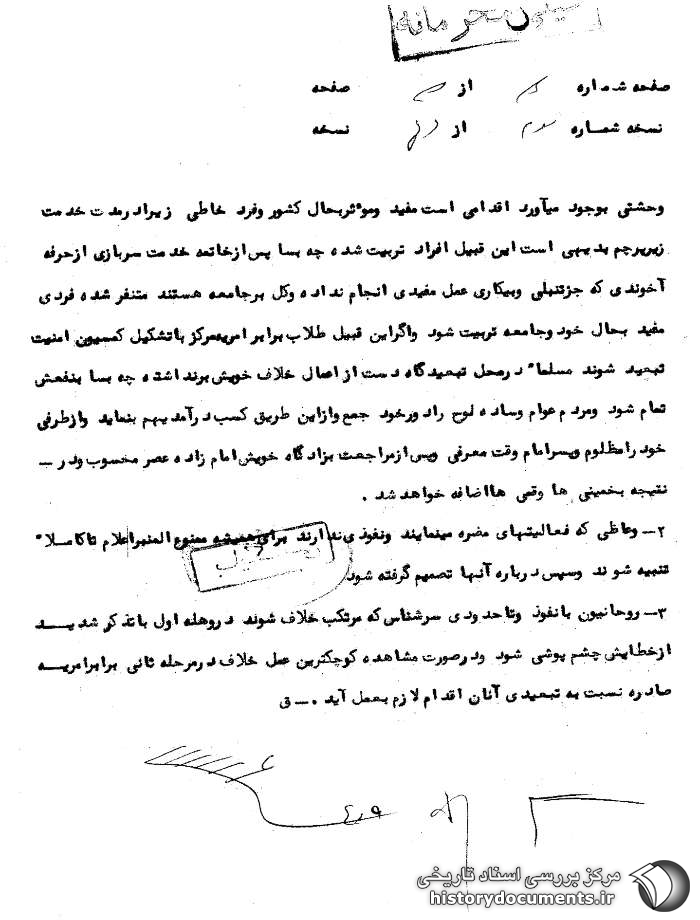 خیلی محرمانه
صفحه شماره از صفحه
نسخه شماره سوم از نسخه
وحشتی بوجود میآورد اقدامی است مفید وموثربحال کشور وفرد خاطی زیرادرمدت خدمت
زیرپرچم بدیهی است این قبیل افراد تربیت شده چه بسا پس‌ازخاتمه خدمت سربازی ازحرفه
آخوندی که جزتنبلی وبیکاری عمل مفیدی انجام نداده وکل برجامعه هستند متنفر شده فردی
مفید بحال خود وجامعه تربیت شود واگراین قبیل طلاب برابر امریه‌مرکز باتشکیل کمسیون امنیت
تبعید شوند مسلماً درمحل تبعیدگاه دست از اعمال خلاف خویش برنداشته چه بسا بنفعش
تمام شود ومردم عوام وساده لوح رادورخود جمع وازاین طریق کسب درآمدیهم بنماید وازطرفی
خود رامظلوم وپسرامام وقت معرفی وپس‌ازمراجعت بزادگاه خویش امام زاده عصر محسوب ودر ـ
نتیجه بخمینی ها وقمی هااضافه خواهد شد .
۲ـ وعاظی که فعالیتهای مضره مینمایند ونفوذی ندارند برای همیشه ممنوع المنبراعلام تاکاملاً
تنبیه شوند وسپس درباره آنها تصمیم گرفته شود
۳ـ روحانیون بانفوذ وتاحدودی سرشناس که مرتکب خلاف شوند دروهله اول باتذکر شدیـــد
ازخطایش چشم پوشی شود ودرصورت مشاهده کوچکترین عمل خلاف درمرحله ثانی برابرامریـــه
صادره نسبت به تبعیدی آنان اقدام لازم بعمل آید . ـ ق
مرکز بررسی اسناد تاریخی
historydocuments.ir